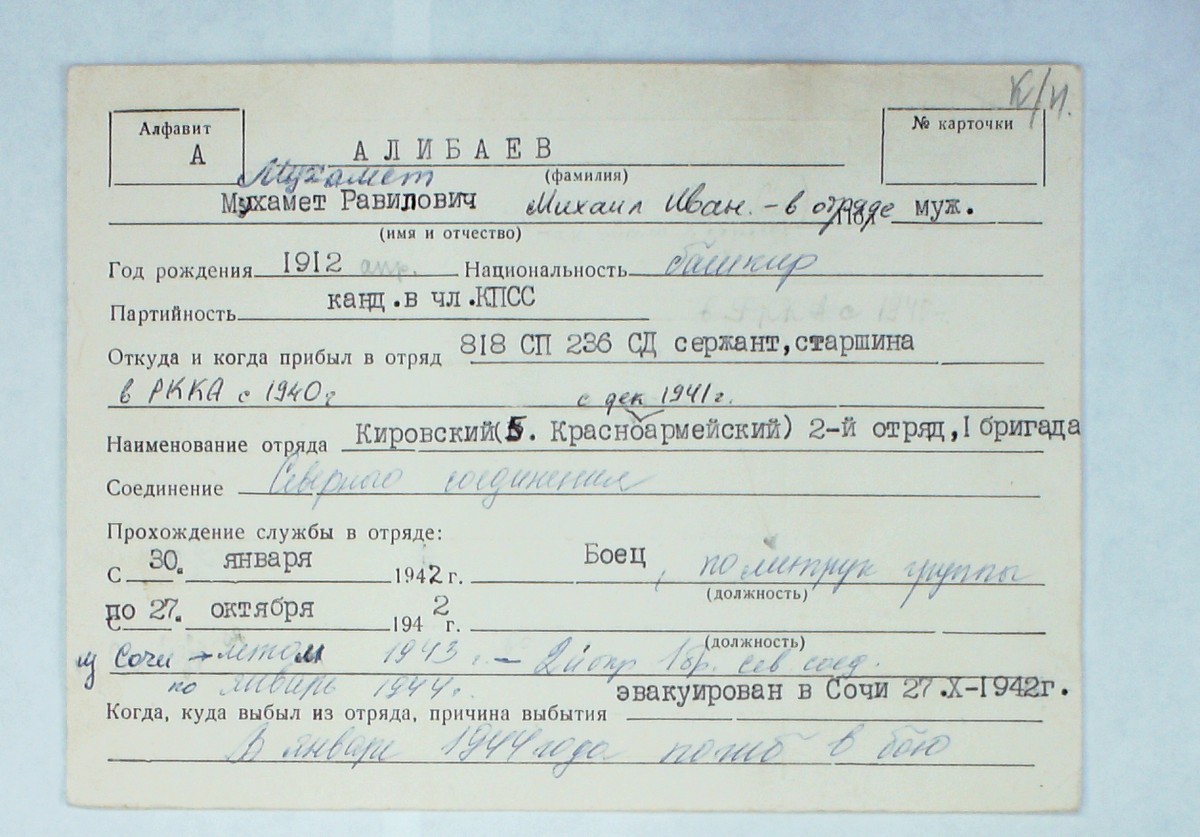 К/п.
Алфавит
А
№ карточки
АЛИБАЕВ
(фамилия)
Мухамет
Мухамет Равилович Михаил Иван. – в отряде Пол муж.
(имя и отчество)
Год рождения 1912 апр. Национальность башкир
Партийность канд.в чл.КПСС
Откуда и когда прибыл в отряд 818 СП 236 СД сержант,старшина
в РККА с 1940г с дек 1941г.
Наименование отряда Кировский(Б. Красноармейский) 2-й отряд,I бригада
Соединение Северного соединения
Прохождение службы в отряде:
С 30. января 1942 г. Боец, политрук группы
(должность)
по 27. октября 1942 г.
(должность)
из Сочи → летом 1943 г. – 2й отр 1 бр. сев. соед.
по январь 1944г.
эвакуирован в Сочи 27.X-I942г.
Когда, куда выбыл из отряда, причина выбытия
В январе 1944 года погиб в бою